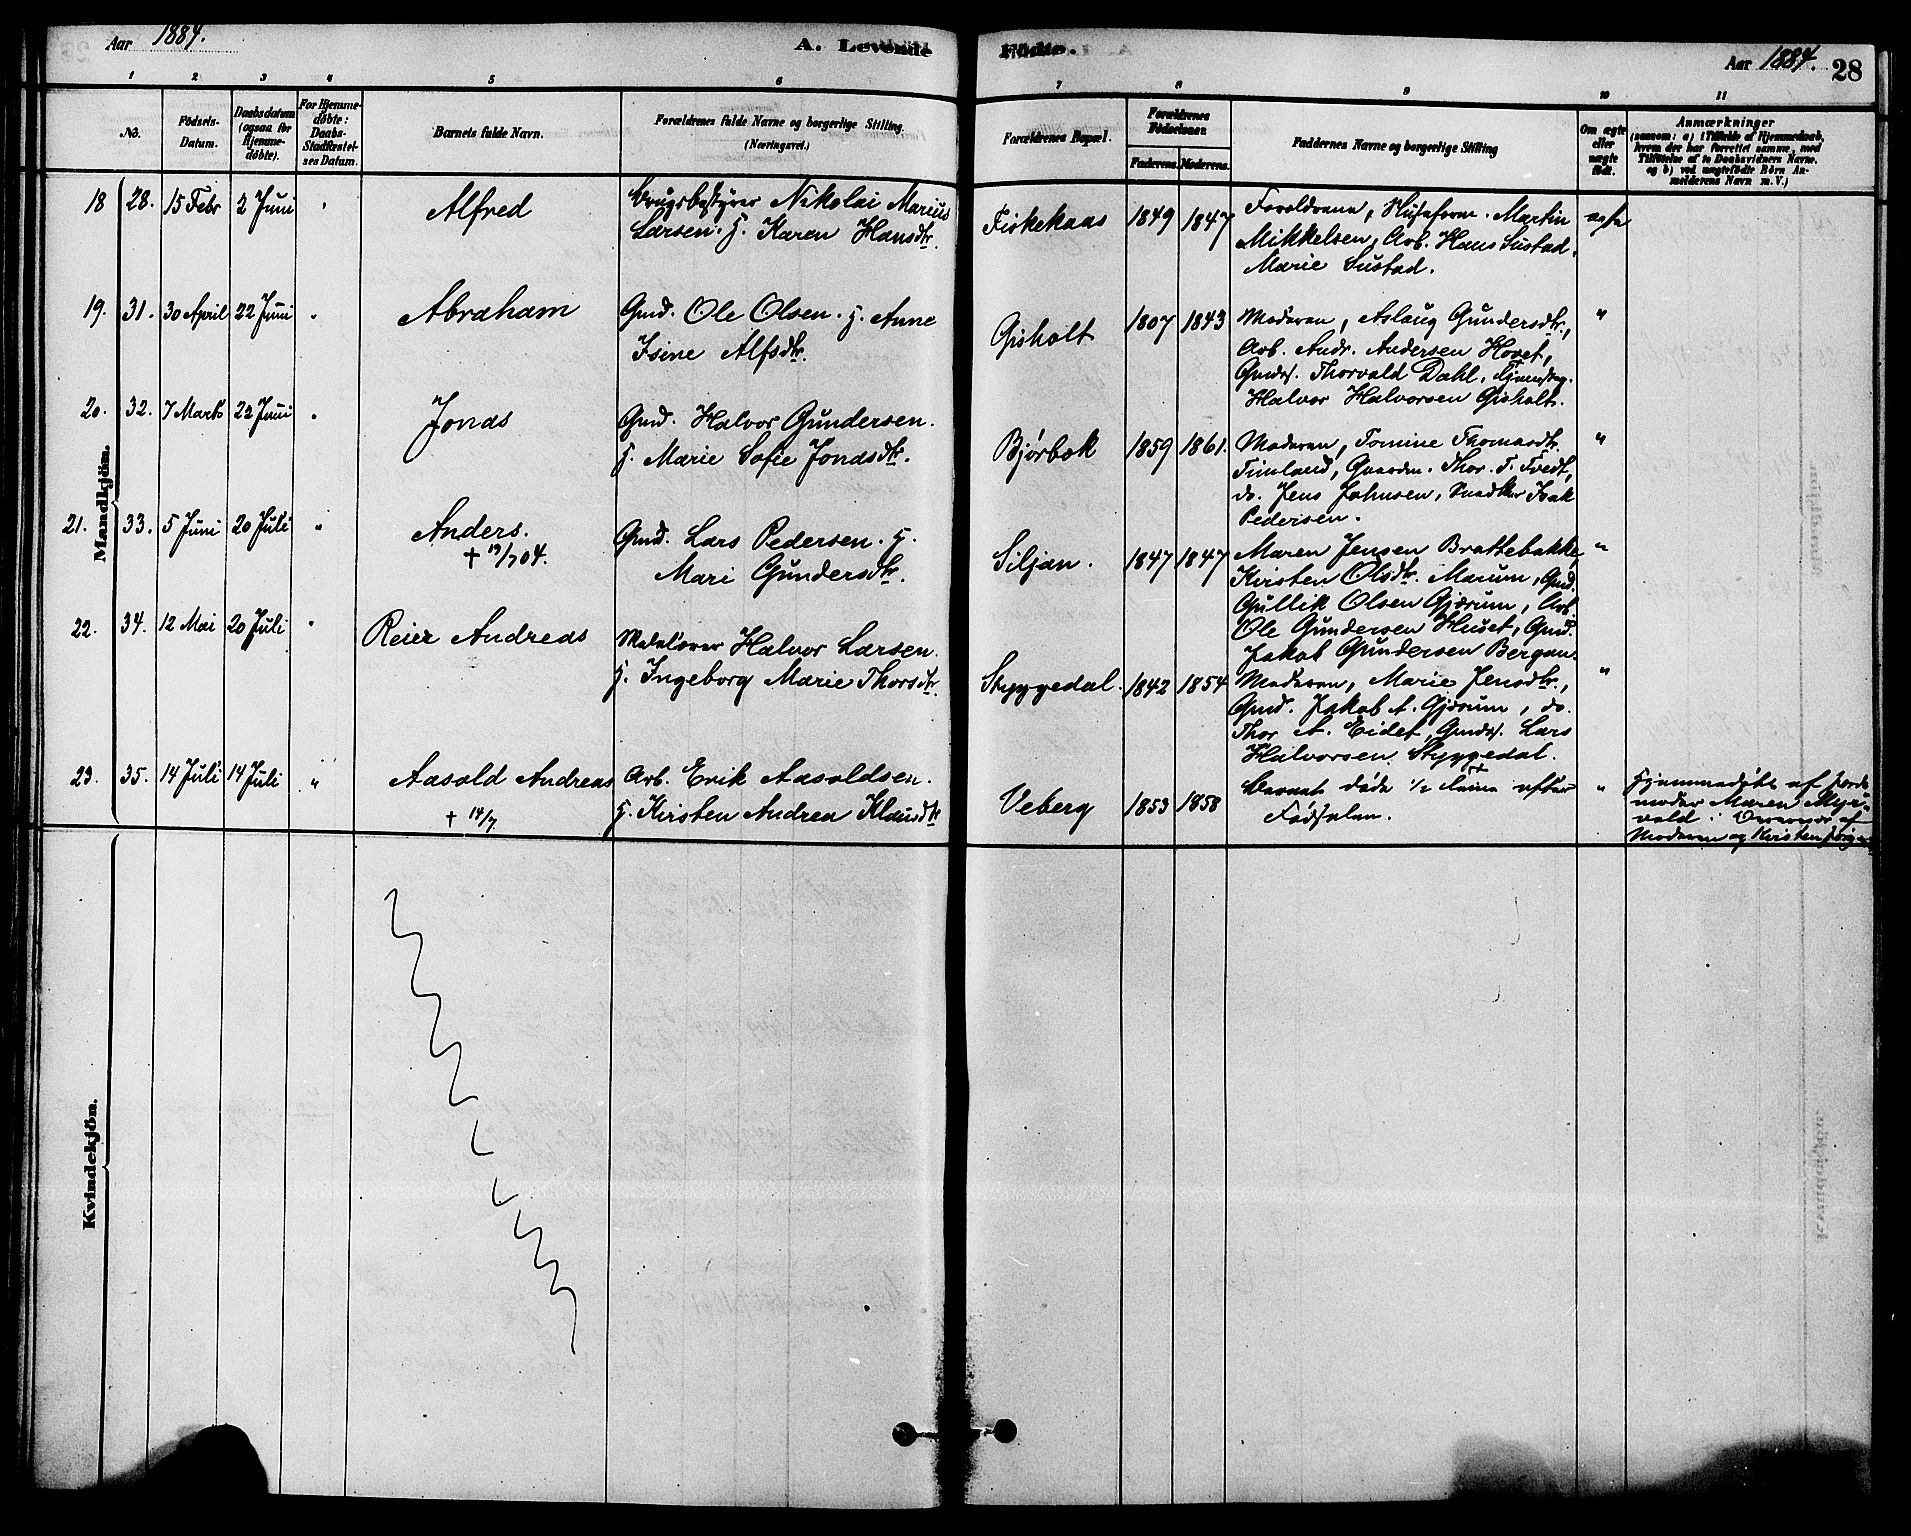 Aar 1884.
A. Levende Fødte.
Aar 1884. 28
1 2 3 4 5 6 7 8 9 10 11
No.
Fødsels-
Datum.
Daabsdatum
(ogsaa for
Hjemme-
døbte).
For Hjemme-
døbte:
Daabs-
Stadfæstel-
ses Datum.
Barnets fulde Navn.
Forældrenes fulde Navne og borgerlige Stilling.
(Næringsvei.)
Forældrenes Bopæl.
Forældrenes
Fødselsaar.
Faderens. Moderens.
Faddernes Navne og borgerlige Stilling
Om ægte
eller
uægte
født.
Anmærkninger
(saasom: a) i Tilfælde af Hjemmedaab,
hvem der har forrettet samme, med
Tilføielse af to Daabsvidners Navne.
og b) ved uægtefødte Børn An-
melderens Navn m. V.)
Mandkjön.
18 28. 15 Febr 2 Juni
Alfred
Brugsbestyrer Nikolai Marius
Larsen. H. Karen Hansdtr.
Fiskekaas 1849 1847
Forældrene, Husfom. Martin
Mikkelsen, Arb. Hans Sustad.
Marie Sustad.
ægte
19. 31. 30 April 22 Juni "
Abraham
Gmd. Ole Olsen. H. Anne
Isine Alfsdtr.
Gisholt 1807 1843
Moderen, Aslaug Gundersdtr.,
Arb. Andr. Andersen Hovet,
Gmds. Thorvald Dahl,
Halvor Halvorsen Gisholt.
"
20. 32. 7 Marts 22 Juni "
Jonas
Gmd. Halvor Gundersen.
H. Marie Sofie Jonasdtr.
Bjørbæk 1859 1861.
Moderen, Tomine Thomasdtr.
Timland, Gaardm. Thor. T. Tvedt,
do. Jens Johnsen, Snedker Isak
Pedersen.
"
21. 33. 5 Juni 20 Juli "
Anders.
+ 19/7 04.
Gmd. Lars Pedersen. H.
Mari Gundersdtr.
Siljan. 1847 1847
Maren Jensen Brattebakke,
Kirsten Olsdtr. Marum, Gmd.
Gullik Olsen Gjærum, Arb.
Ole Gundersen Huset, Gmd.
Jakob Gundersen Bergan.
"
22. 34. 12 Mai 20 Juli "
Reier Andreas
Halvor Larsen.
H. Ingeborg Marie Thorsdtr.
Styggedal. 1842 1854
Moderen, Marie Jensdtr.,
Gmd. Jakob A. Gjærum, do.
Thor A. Eidet, Gmds. Lars
Halvorsen Styggedal.
"
23. 35. 14 Juli 14 Juli "
Aasold Andreas
+ 14/7.
Arb. Erik Aasoldsen.
H. Kirsten Andrea Klausdtr
Veberg 1853 1858
Barnet døde 1/2 Time efter
Fødselen.
"
Hjemmedøbt af Jorde
moder Maren Myr-
vold i Overvær af
Moderen og Kirsten
Kvindekjön.